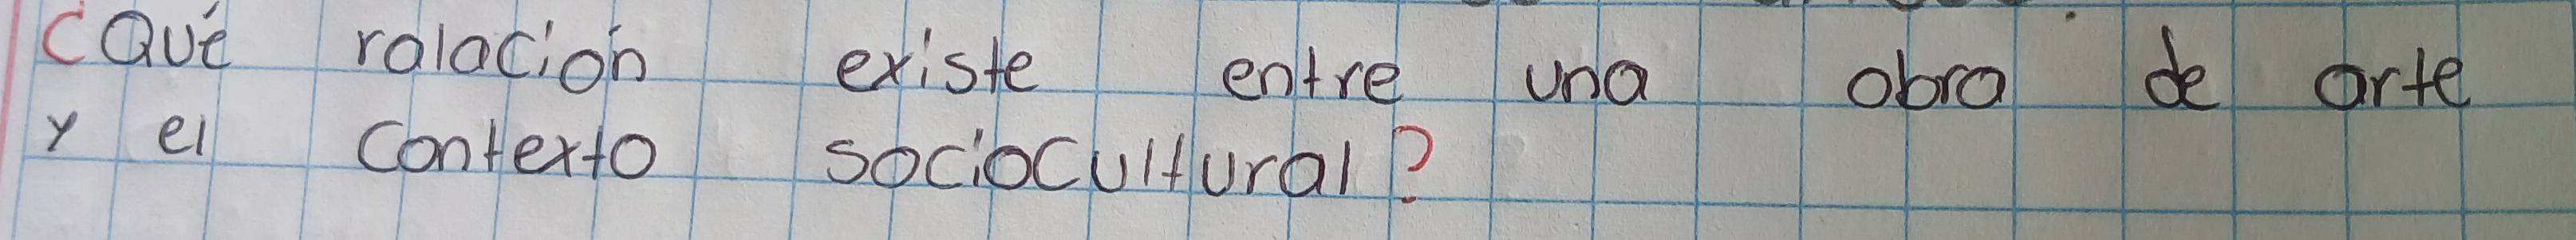 ¿Qué ralación existe entre una obra de arte
y el contexto sociocultural?